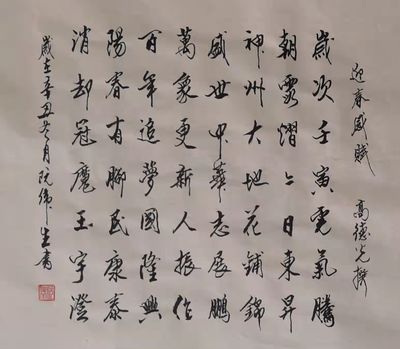 迎春感賦 高德光撰
歲次壬寅虎氣騰
朝霞熠々日東昇
神州大地花鋪錦
盛世中華志展鵬
萬象更新人振作
百年追夢國隆興
陽春有腳民康泰
消却冠魔玉宇澄
歲在辛丑冬月阮偉生書